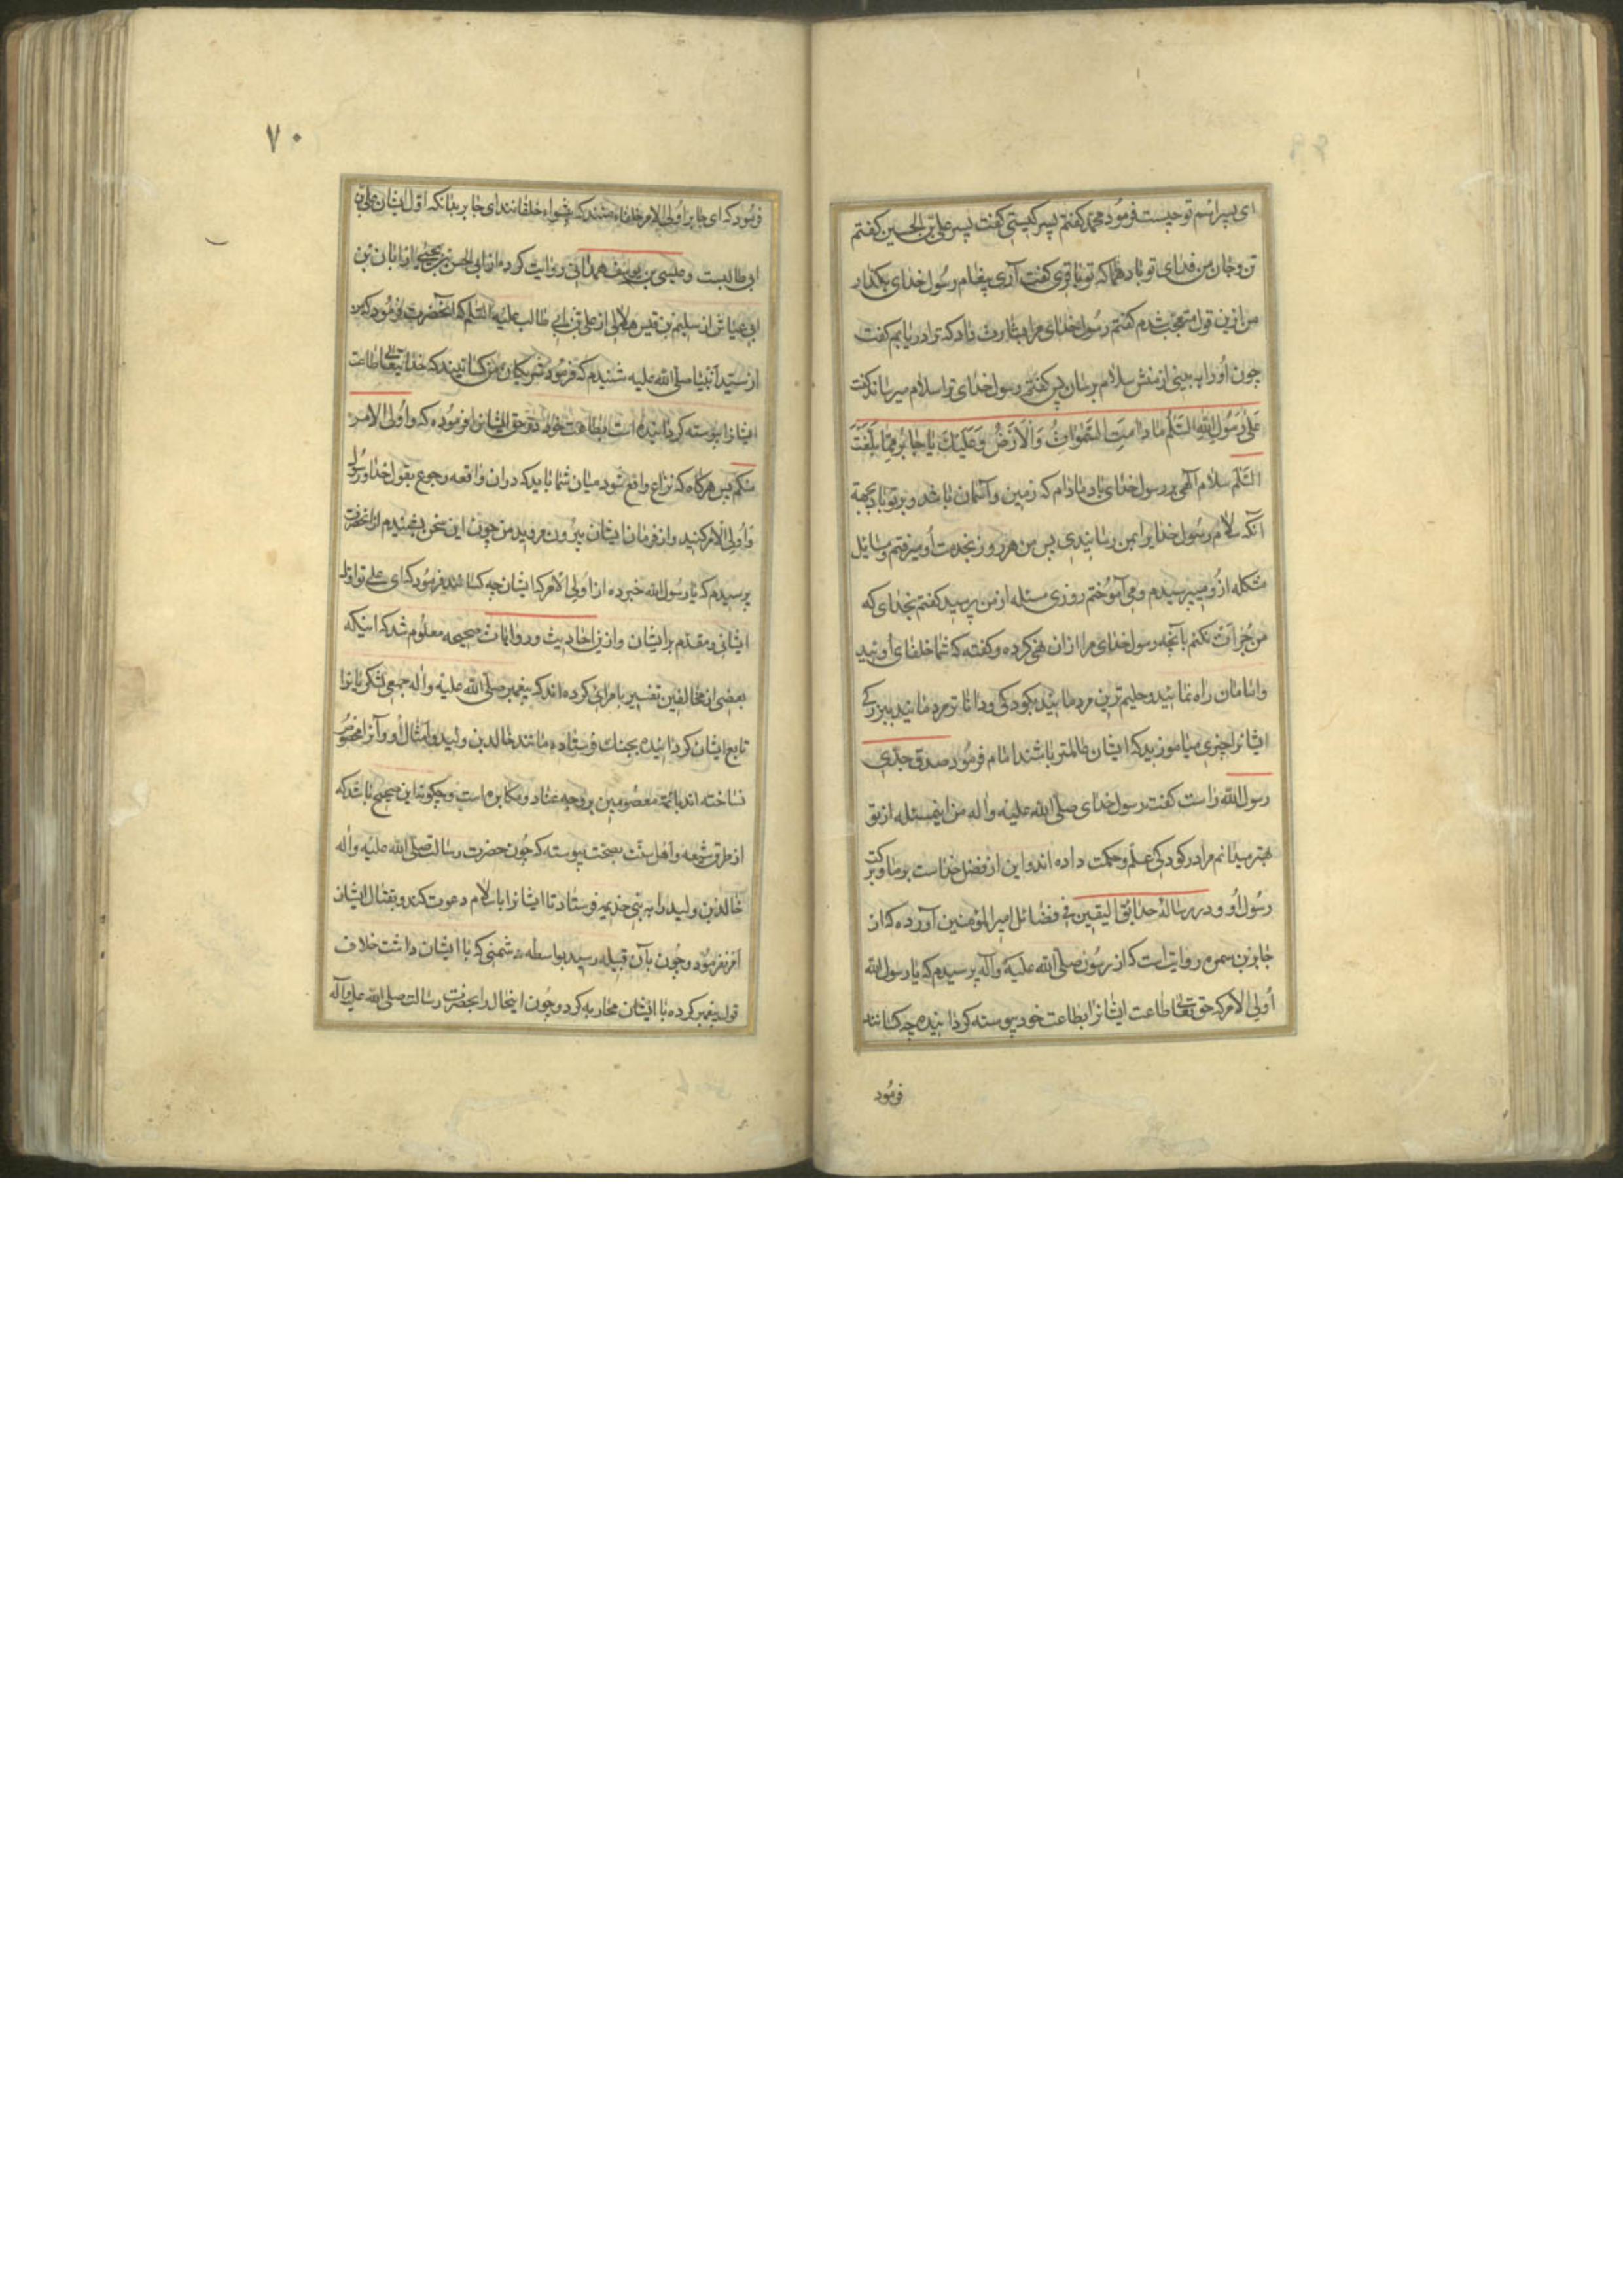 ای پسر اسم تو چیست فرمود محمد کفتم پسر کیستی کفت پسر علی بن الحسین کفتم
تن و جان من فدای تو باد همانا که تو باقری کفت آری پیغام رسول خدای بکذار
من ازین قول متعجب شدم کفتم رسول خدای مرا بشارت داد که ترا دریابم کفت
چون او را به بینی از منش سلام برسان پس کفتم رسول خدای ترا سلام میرساند کفت
عَلی رَسُولِ اللهِ السَّلٰمُ مٰا دٰامَتِ السَّمٰوٰاتُ وَالْاَرْضُ وَعَلَیْكَ یٰا جٰابِرُ بِمٰا بَلَّغْتَ
السَّلٰمَ سلام آلهی بر رسول خدای باد مادام که زمین و آسمان باشد و بر تو باد بجهة
آنکه سلام رسول خدا برا بمن رسانیدی پس من هر روز بخدمت او میرفتم و مسایل
مشکله ازو میپرسیدم و می آموختم روزی مسئله از من پرسید کفتم بخدای که
من جرات نکنم بآنچه رسول خدای مرا ازان نهی کرده و کفته که شما خلفای اوئید
و امامان راه نمائید و حلیم ترین مردمانید بکودکی و داناتر مردمانید ببزرکی
ایشانرا چیزی میاموزید که ایشان عالمتر باشند امام فرمود صدق جدی
رسول الله راست کفت رسول خدای صلی الله علیه و اله من اینمسئله از تو
بهتر میدانم مرا در کودکی علم و حکمت داده اند و این از فضل خداست بر ما و برکت
رسول او و در رسالهٔ حدایق الیقین فی فضایل امیر المؤمنین آورده که از
جابر بن سمره روایت است که از رسول صلی الله علیه و آله پرسیدم که یا رسول الله
اولی الامر که حق تعالی طاعت ایشانرا بطاعت خود پیوسته کردانیده چه کسانند
فرمود
۷۰
فرمود که ای جابر اولی الامر خلفاء منند که خلفانند ای جابر بدانکه اوّل ایشان علی بن
ابی طالبست و عیسی بن یوسف همدانی روایت کرده از ابی الحسن بن یحیی از ابان بن
ابی عیاش از سلیم بن قیس هلالی از علی بن ابی طالب علیه السلم که آنحضرت فرمود که من
از سید انبیا صلی الله علیه شنیدم که فرمود شریکان من کسانیند که خدا تعالی طاعت
ایشانرا پیوسته کردانیده است بطاعت خود و در حق ایشان فرموده که و اولی الامر
منکم پس هرکاه که نزاع واقع شود میان شما باید که دران واقعه رجوع بقول خدا و رسول
و اولی الامر کنید و از فرمان ایشان بیرون مروید من چون این سخن بشنیدم از آنحضرت
پرسیدم که یا رسول الله خبر ده از اولی الامر که ایشان چه کسانند فرمود که ای علی تو اول
ایشانی و مقدم بر ایشان و ازین احادیث و روایات صحیحه معلوم شد که اینکه
بعضی از مخالفین تفسیر بامرای کرده اند که پیغمبر صلی الله علیه و آله جمعی لشکریانرا
تابع ایشان کردانیده بجنك فرستاده مانند خالد بن ولید و امثال او و آنرا مخصوص
نساخته اند بائمه معصومین بر وجه عناد و مکابره است و چکونه این صحیح باشد که
از طرق شیعه و اهل سنت بصحت پیوسته که چون حضرت رسالت صلی الله علیه و اله
خالد بن ولید را به بنی خذیمه فرستاد تا ایشانرا باسلام دعوت کند و بقتال ایشان
امر نفرمود و چون بآن قبیله رسید بواسطه دشمنی که با ایشان داشت خلاف
قول پیغمبر کرده با ایشان محاربه کرد و چون اینحال را بحضرت رسالت صلی الله علیه و آله